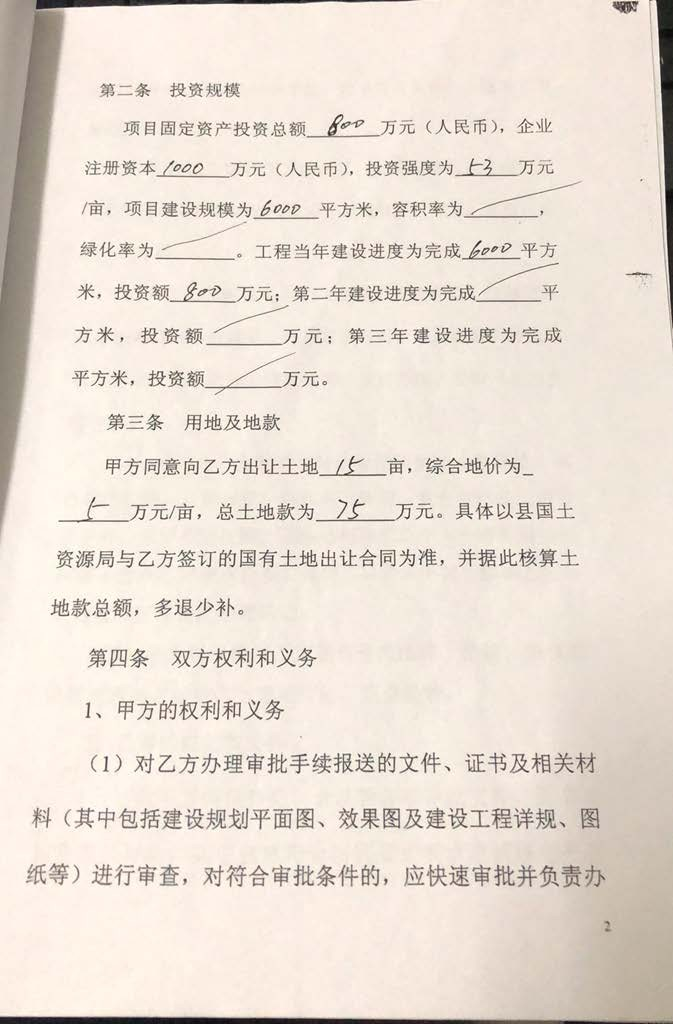 第二条 投资规模
项目固定资产投资总额 800 万元（人民币），企业
注册资本 1000 万元（人民币），投资强度为 53 万元
/亩，项目建设规模为 6000 平方米，容积率为______，
绿化率为______。工程当年建设进度为完成 6000 平方
米，投资额 800 万元；第二年建设进度为完成______平
方米，投资额______万元；第三年建设进度为完成
平方米，投资额______万元。
第三条 用地及地款
甲方同意向乙方出让土地 15 亩，综合地价为_
5 万元/亩，总土地款为 75 万元。具体以县国土
资源局与乙方签订的国有土地出让合同为准，并据此核算土
地款总额，多退少补。
第四条 双方权利和义务
1、甲方的权利和义务
（1）对乙方办理审批手续报送的文件、证书及相关材
料（其中包括建设规划平面图、效果图及建设工程详规、图
纸等）进行审查，对符合审批条件的，应快速审批并负责办
2